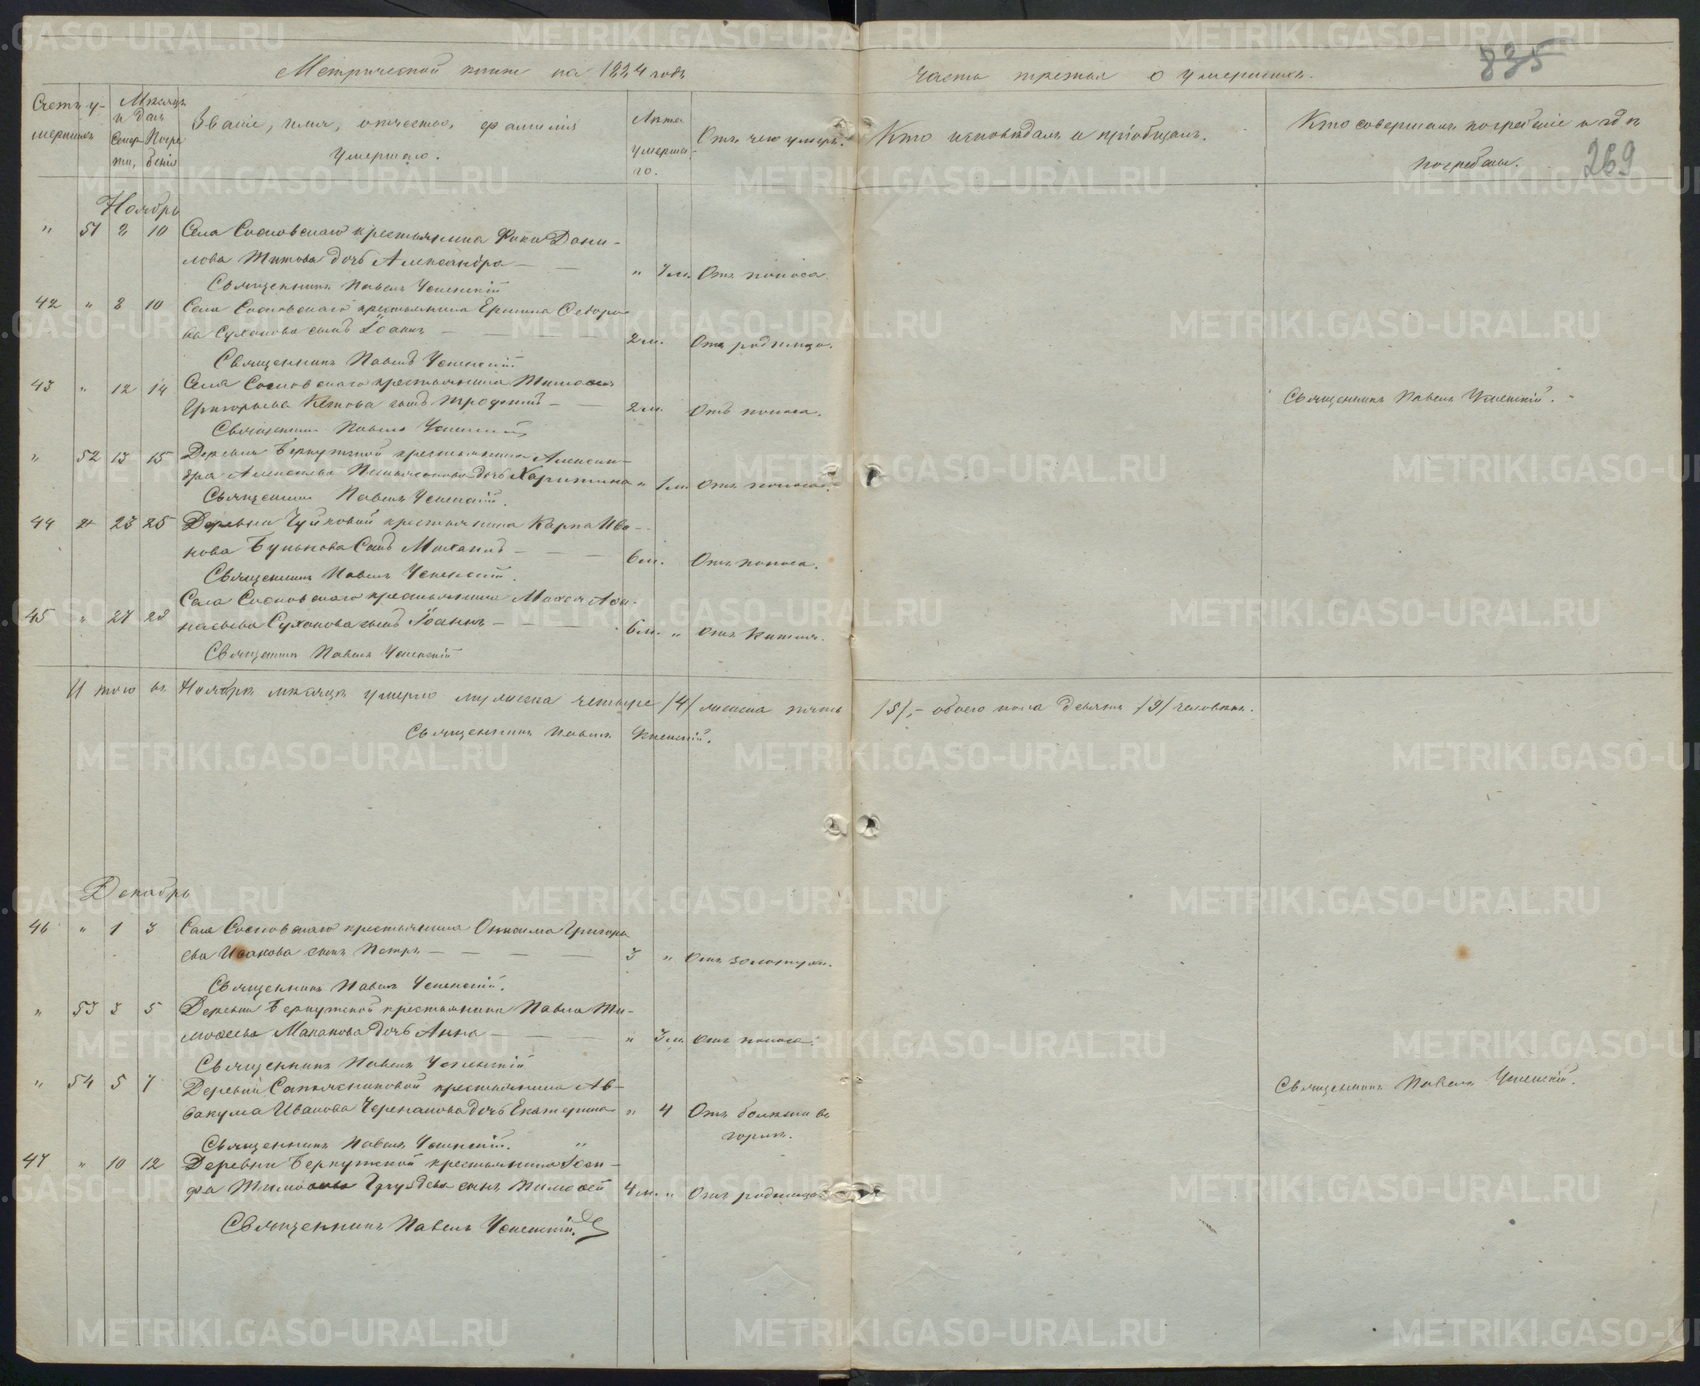 Метрической книги на 1884 годъ
часть третья о умершихъ.
835
269
Счетъ у-
мершихъ
Мѣсяцъ
и день
Смер-
ти,
Погре
бенія
Званіе, имя, отчество, фамилія
умершаго.
Лѣта
умерша-
го.
Отъ чего умеръ.
Кто исповѣдалъ и пріобщалъ.
Кто совершалъ погребеніе и гдѣ
погребены.
Ноябрь
" 51 8 10 Села Сосновскаго крестьянина Дани-
лова Титова дочь Александра
" 7 м. Отъ поноса
Священникъ Павелъ Успенскій
42 " 8 10 Села Сосновскаго крестьянина Федоро
ва Суханова сынъ Іоаннъ
2 м. Отъ родимца.
Священникъ Павелъ Успенскій
43 " 12 14 Села Сосновскаго крестьянина Тимофея
Григорьева сынъ Трофимъ
2 м. Отъ поноса.
Священникъ Павелъ Успенскій
" 52 13 15 Деревни крестьянина Алексан-
дра Алексѣева дочь Харитина " 1 м. Отъ поноса.
Священникъ Павелъ Успенскій.
44 " 23 25 Деревни крестьянина Карпа Ива-
нова Бунькова сынъ Михаилъ
6 м. Отъ поноса.
Священникъ Павелъ Успенскій.
Села Сосновскаго крестьянина Афа-
45 " 27 28 насьева Суханова сынъ Іоаннъ
6 м. " Отъ кашля.
Священникъ Павелъ Успенскій
Священникъ Павелъ Успенскій.
Итого въ Ноябрѣ мѣсяцѣ умерло мужеска четыре /4/ женска пять /5/,- обоего пола девять /9/ человѣкъ.
Священникъ Павелъ Успенскій.
Декабрь
46 " 1 3 Села Сосновскаго крестьянина Григорь
ева Ивакова сынъ Петръ
3 " Отъ золотухи.
Священникъ Павелъ Успенскій.
" 53 3 5 Деревни крестьянина Павла Ти-
мофеева Маканова дочь Анна
" 3 м. Отъ поноса.
Священникъ Павелъ Успенскій
" 54 5 7 Деревни крестьянина Ав-
вакума Иванова Черепанова дочь Екатерина " 4 Отъ болѣзни въ
горлѣ.
Священникъ Павелъ Успенскій.
47 " 10 12 Деревни крестьянина
Груздева сынъ Тимофей 4 м. " Отъ родимца
Священникъ Павелъ Успенскій
Священникъ Павелъ Успенскій.
METRIKI.GASO-URAL.RU